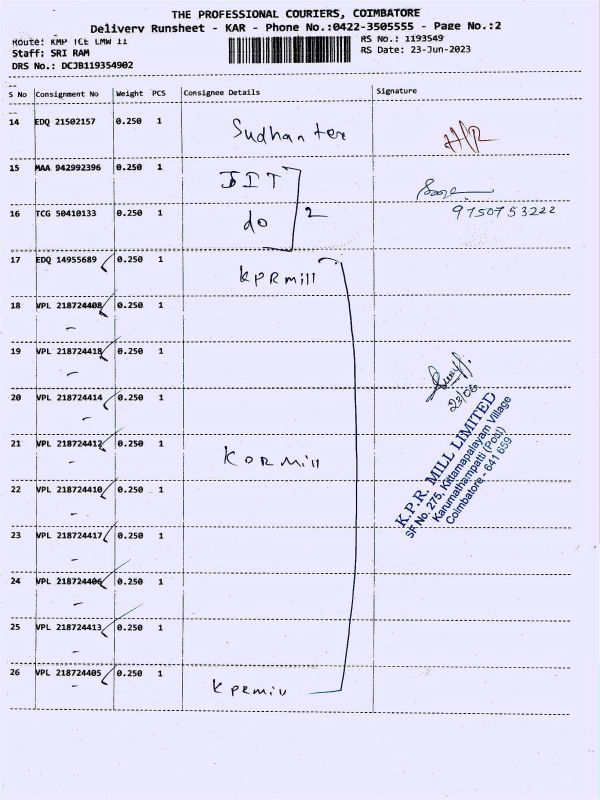 THE PROFESSIONAL COURIERS, COIMBATORE
Delivery Runsheet - KAR - Phone No.:0422-3505555 - Page No.:2
Route: KMP ICE LMW II
RS No.: 1193549
Staff: SRI RAM
RS Date: 23-Jun-2023
DRS No.: DCJB119354902
S No Consignment No Weight PCS Consignee Details Signature
14 EDQ 21502157 0.250 1
15 MAA 942992396 0.250 1
JIT
9750753222
16 TCG 50410133 0.250 1 do 2
17 EDQ 14955689 0.250 1 KPRmill
18 VPL 218724408 0.250 1
19 VPL 218724418 0.250 1
20 VPL 218724414 0.250 1
23/06
21 VPL 218724412 0.250 1 KPRMill
K.P.R. MILL LIMITED
SF No. 275, Kittampalayam Village
Karumathampatti (Post)
Coimbatore - 641 659
22 VPL 218724410 0.250 1
23 VPL 218724417 0.250 1
24 VPL 218724406 0.250 1
25 VPL 218724413 0.250 1
26 VPL 218724405 0.250 1 KPRMill